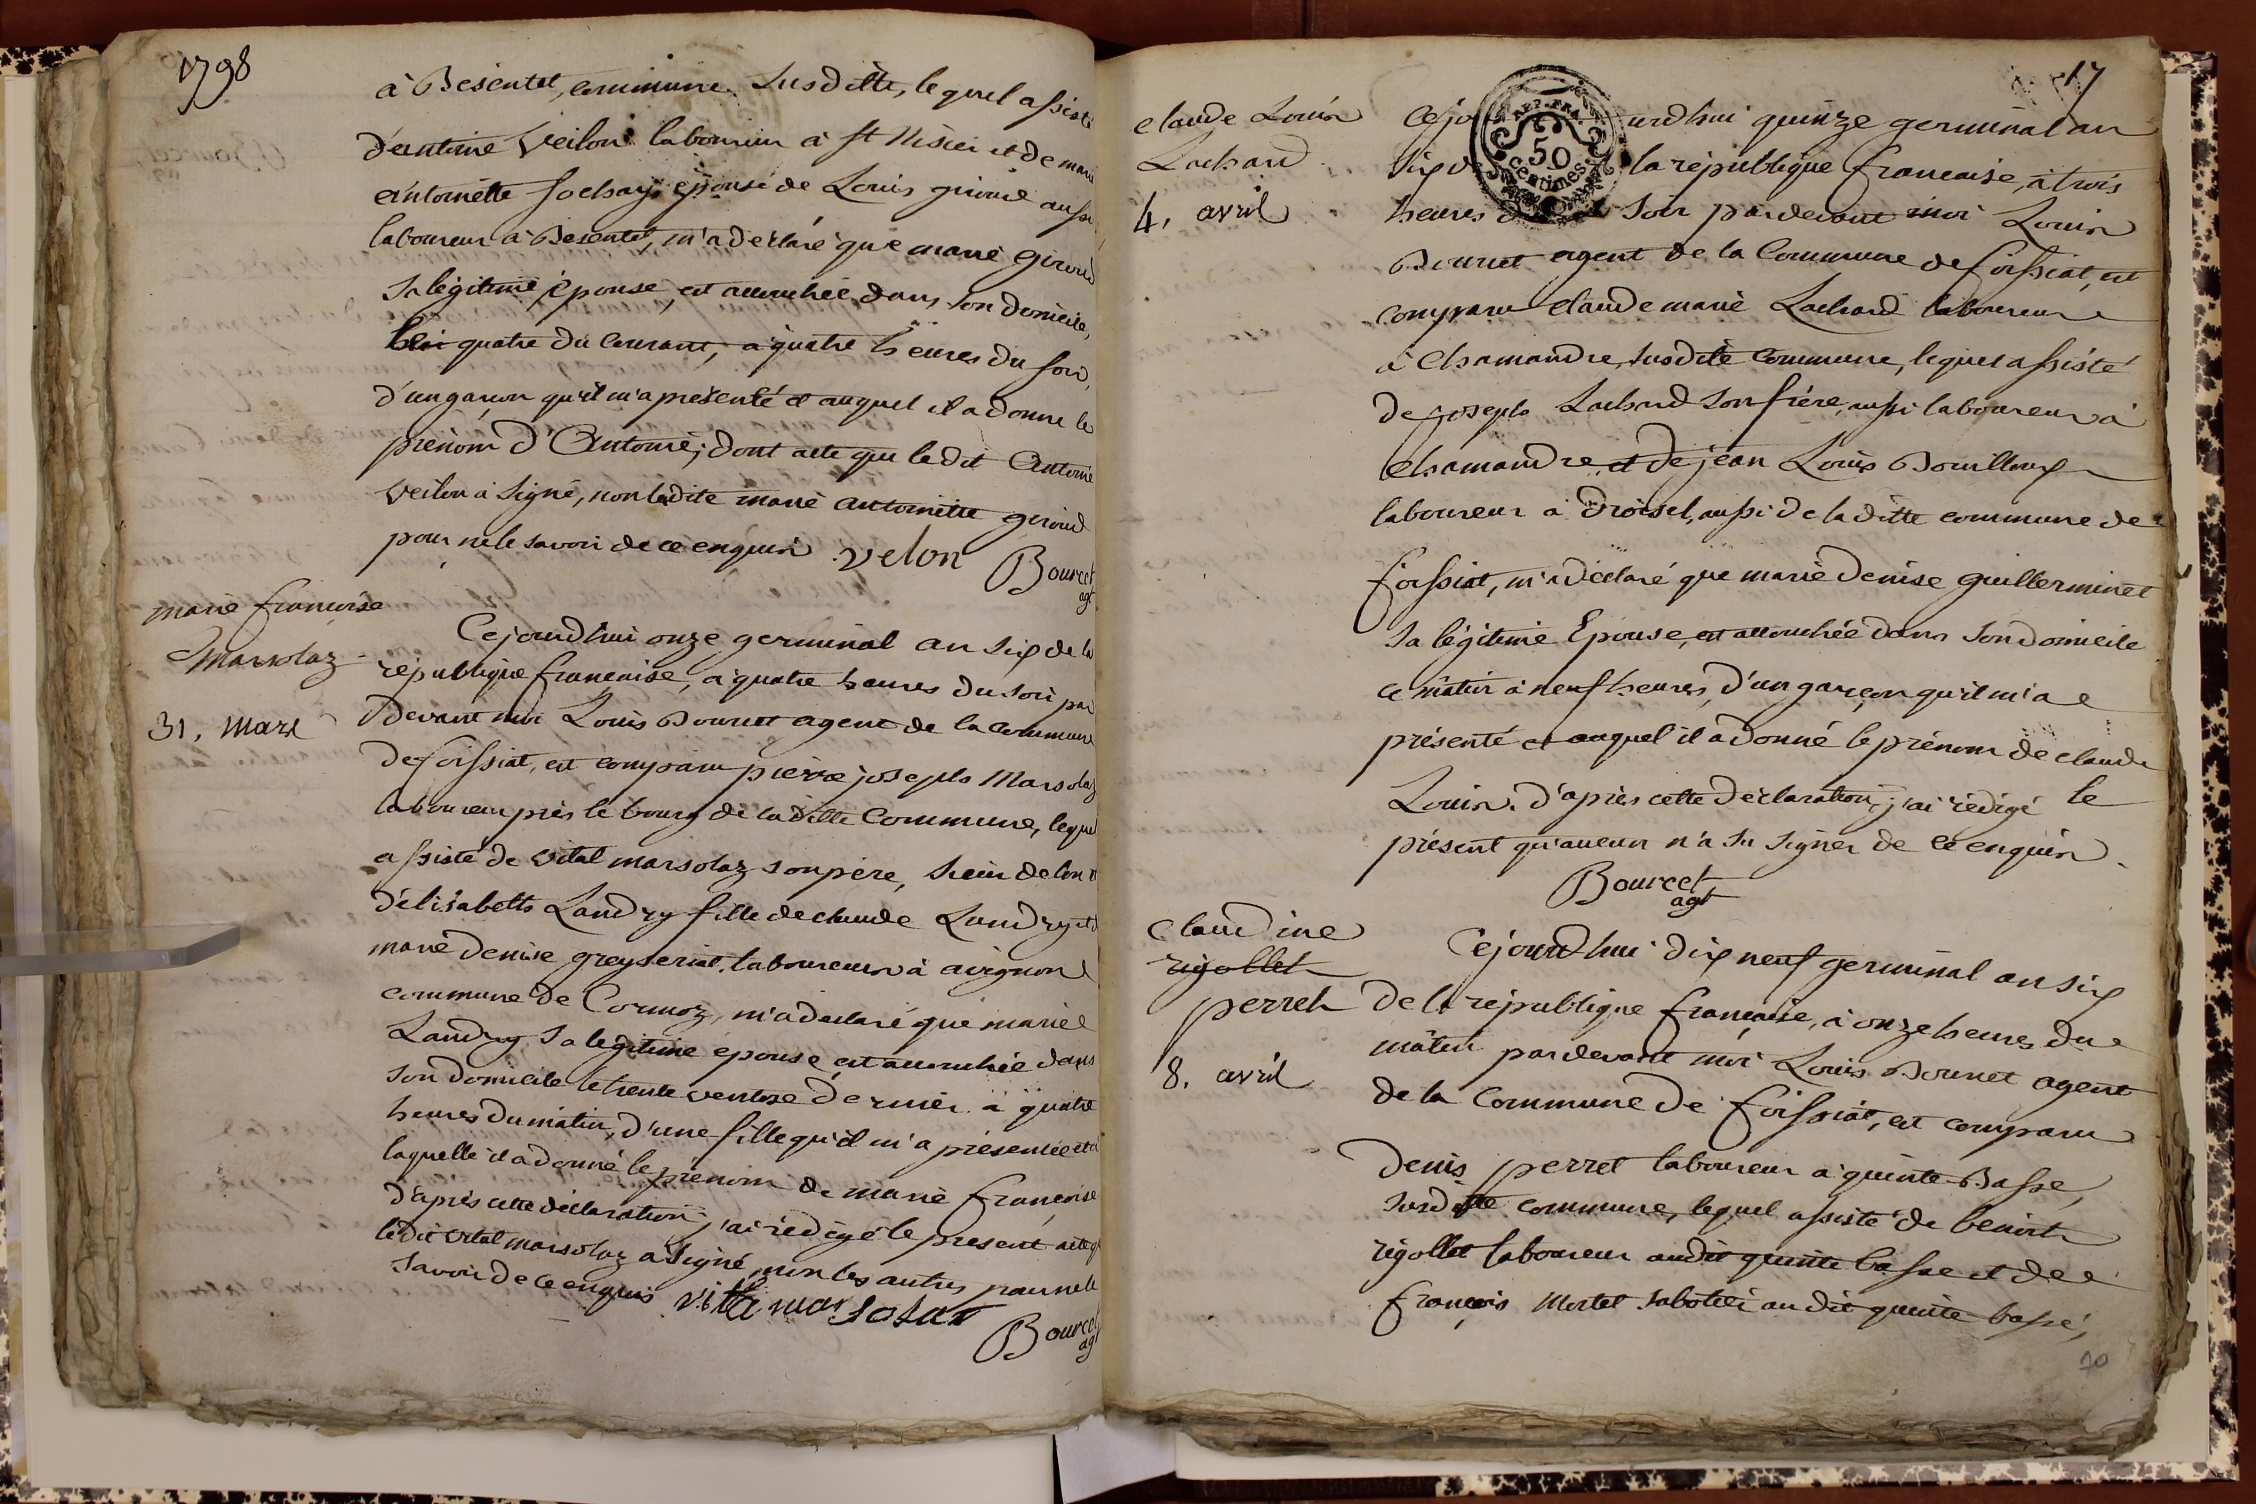 1798
à Besentet, commune Susditte, lequel assisté
d'antoine Veilon laboureur à st Nisier et de marie
antoinette Sochay épouse de Louis giroud aussi
laboureur à Besentet, m'a déclaré que marie giroud
Sa légitime épouse, est accouchée dans son domicile,
hier quatre du courant, a quatre heures du soir,
d'un garcon qu'il m'a présenté et auquel il a donné le
prénom d'Antoine; dont acte que le dit Antoine
Veilon a Signé, non ladite marie antoinette giroud
pour ne le savoir de ce enquis
velon
Bourcet
agt
marie françoise
Marsolaz
31. mars
Cejourd'hui onze germinal an six de la
république francaise, a quatre heures du soir par
devant moi Louis Bourcet agent de la commune
de foissiat, est comparu pierre joseph Marsolaz
laboureur près le bourg de laditte Commune, lequel
assisté de vital marsolaz son père,
d'élisabeth Landry fille de claude Landry et d
marie denise greyseriat, laboureurs à avignon
commune de Cormoz, m'a déclaré que marie
Landry Sa légitime epouse est accouchée dans
son domicile le trente ventose dernier a quatre
heures du matin, d'une fille qu'il m'a présentée et à
laquelle il a donné le prénom de marie françoise
d'après cette déclaration j'ai rédigé le présent acte q
le dit vital marsolaz a signé, non les autres pour ne le
savoir de ce enquis
vital marsolat
Bourcet
agt
17
REP. FRA.
50
centimes
claude Louis
Lachard
4. avril
Cejourd'hui quinze germinal an
six de la république francaise, à trois
heures du soir pardevant moi Louis
Bourcet agent de la Commune de foissiat, est
comparu claude marie Lachard laboureur
à Chamandre, susdite commune, lequel assisté
de joseph Lachard son frère, aussi laboureur à
Chamandre, et de jean Louis Bouilloux
laboureur à Droisel, aussi de laditte commune de
foissiat, m'a déclaré que marie denise guillerminet
sa légitime Epouse, est accouchée dans son domicile
ce matin à neuf heures, d'un garçon qu'il m'a
présenté et auquel il a donné le prénom de claude
Louis. d'après cette déclaration, j'ai rédigé le
présent qu'aucun n'a su signer de ce enquis.
Bourcet
agt
Claudine
rigollet
perret
8. avril
Cejourd'hui dix neuf germinal an six
de la république française, à onze heures du
matin pardevant moi Louis Bourcet agent
de la Commune de foissiat, est comparu
denis perret laboureur a quinte Basse,
susditte commune, lequel assisté de benoit
rigollet laboureur audit quinte basse et de
françois Mortel sabotier au dit quinte basse,